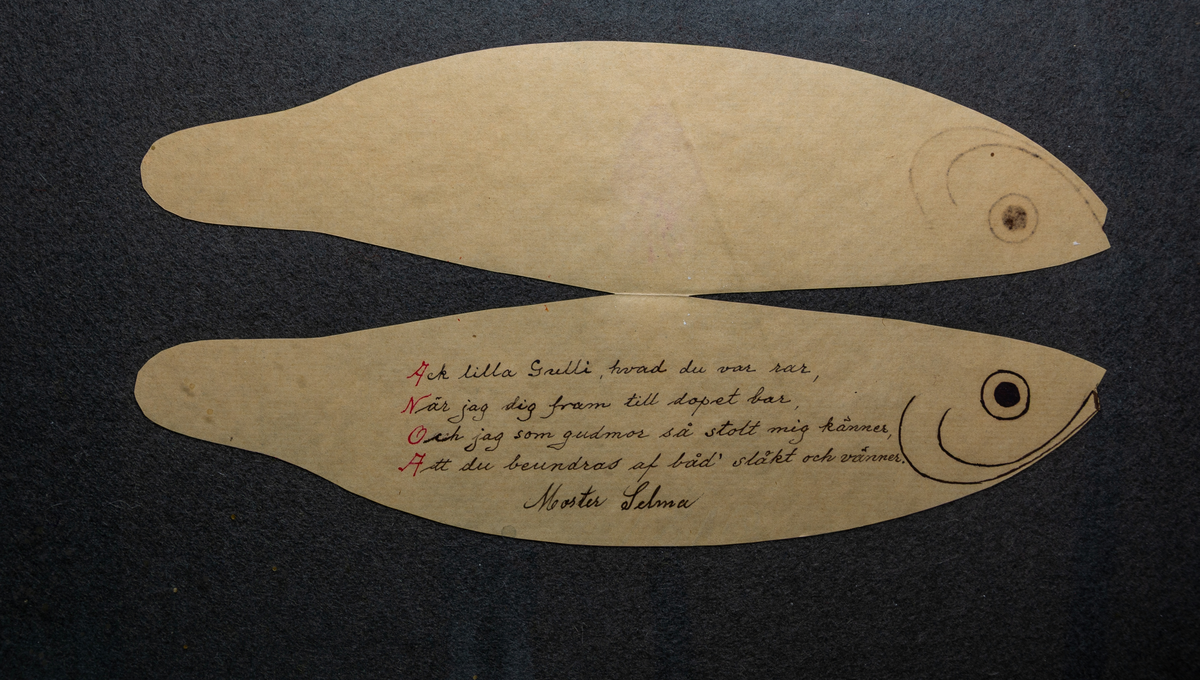 Ack lilla Gulli, hvad du var rar,
När jag dig fram till dopet bar,
Och jag som gudmor så stolt mig känner,
Att du beundras af båd' släkt och vänner.
Moster Selma